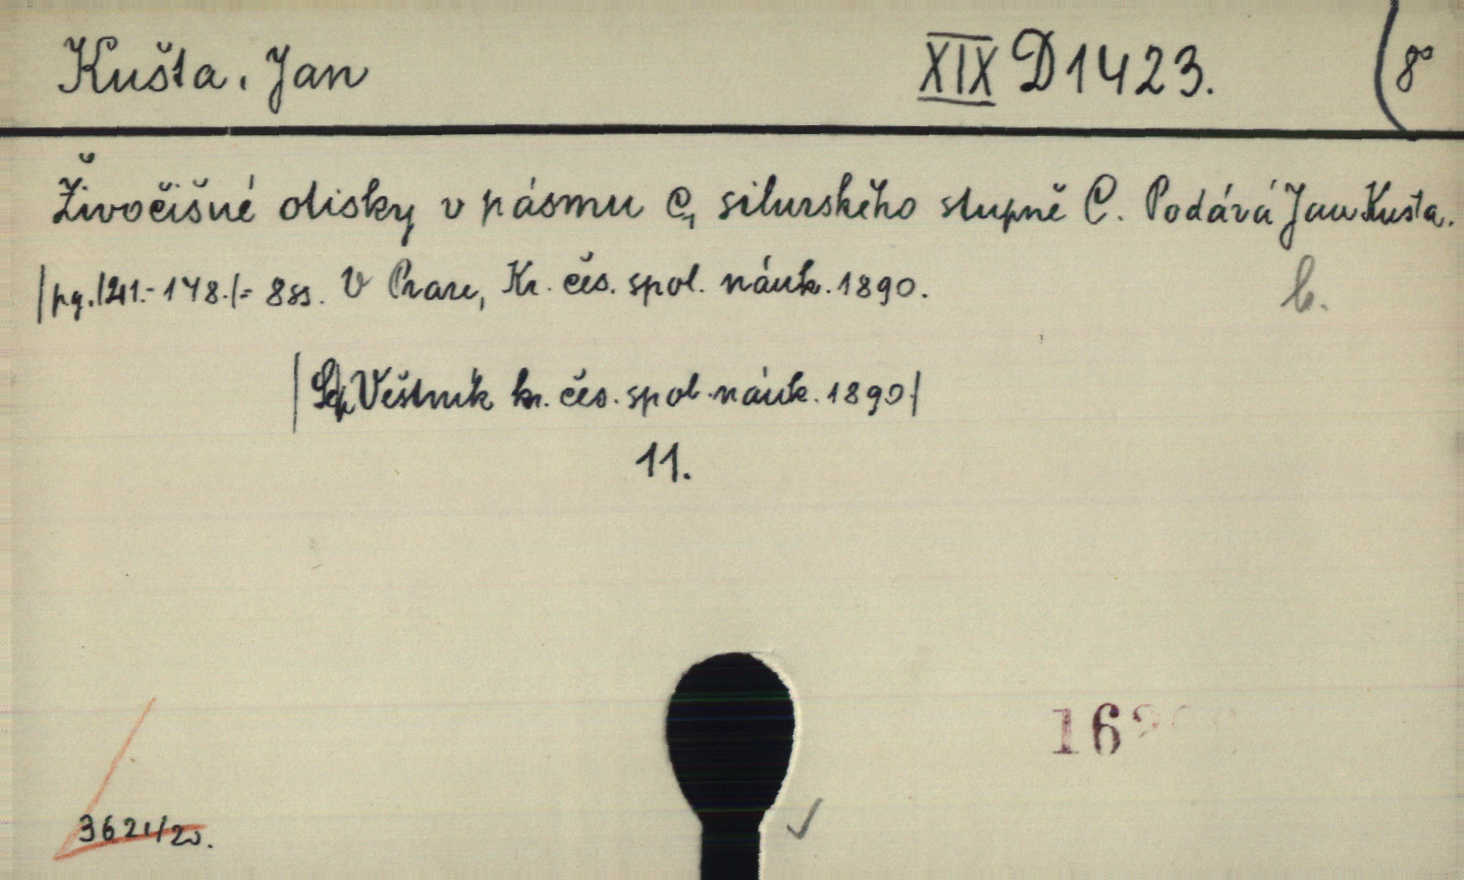 Kušta, Jan XIX D 1423. (8°
Živočišné otisky v pásmu C₁ silurského stupně C. Podává Jan Kušta.
|pg. 141.-148.|= 8 ss. V Praze, Kr. čes. spol. náuk. 1890.
b.
|Sep. Věstník kr. čes. spol. náuk. 1890|
11.
16
3621/20.